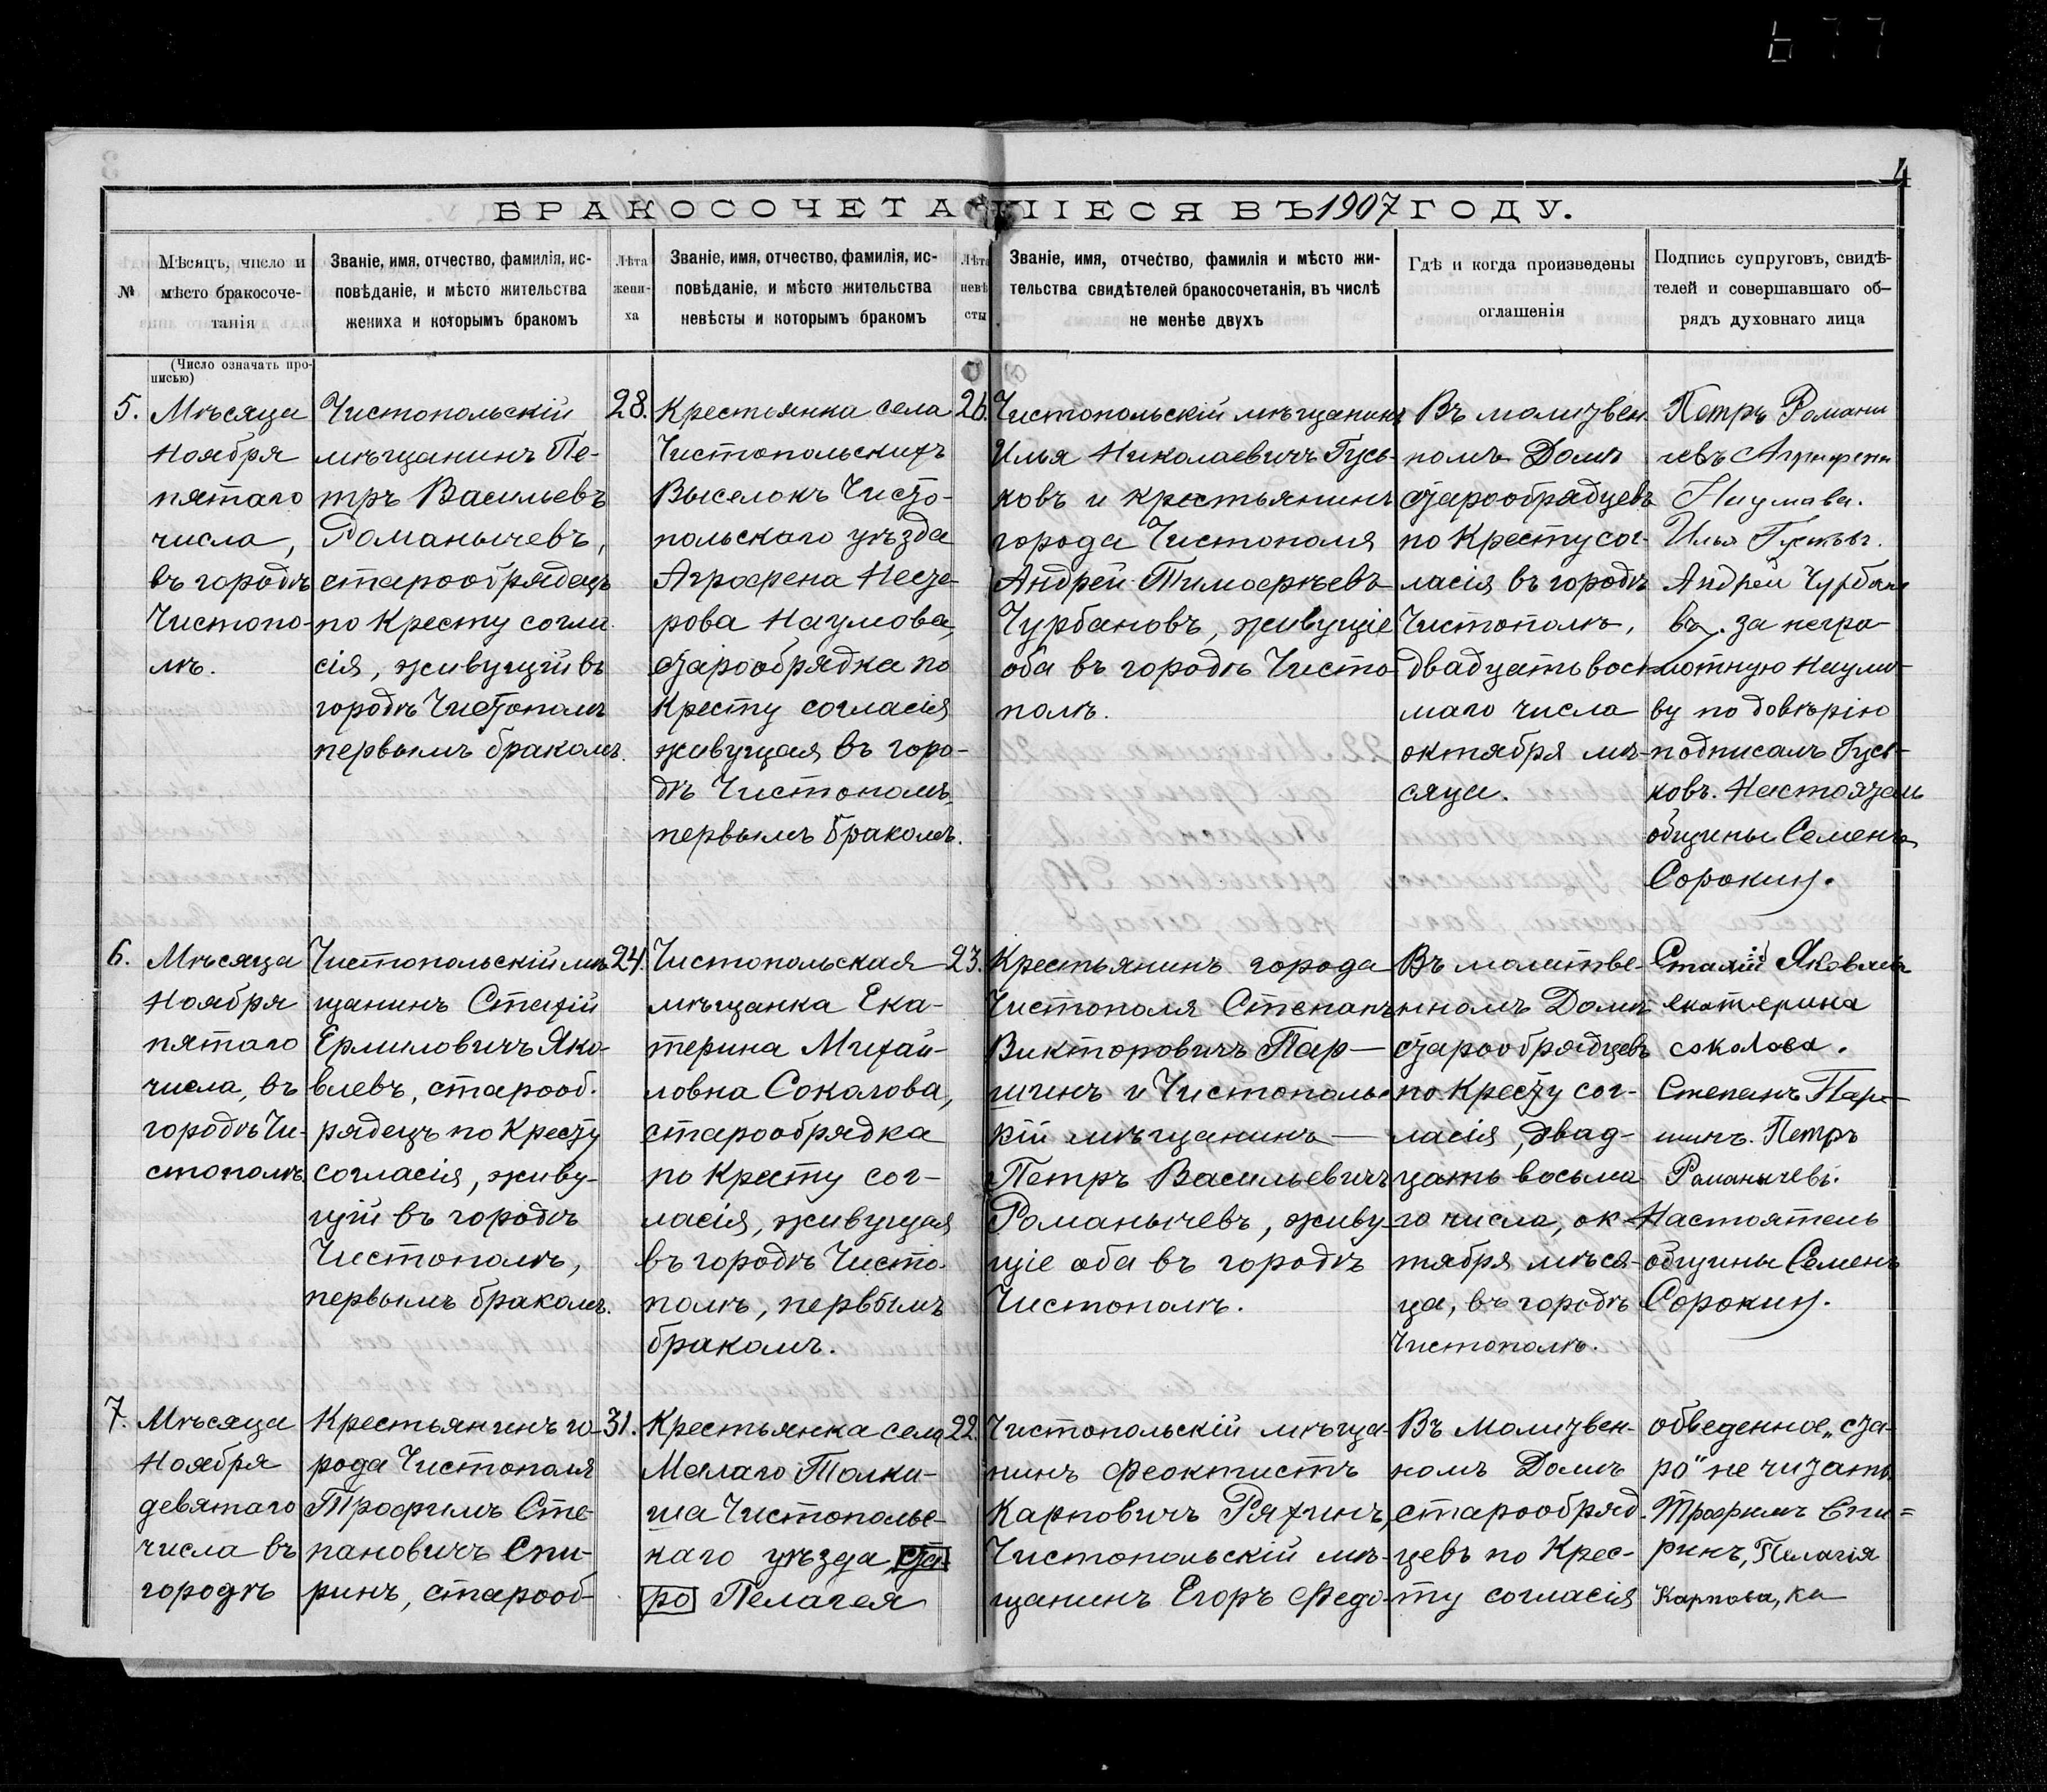 4
БРАКОСОЧЕТАВШІЕСЯ ВЪ 1907 ГОДУ.
№
Мѣсяцъ, число и
мѣсто бракосоче-
танія
(Число означать про-
писью)
Званіе, имя, отчество, фамилія, ис-
повѣданіе, и мѣсто жительства
жениха и которымъ бракомъ
Лѣта
жени-
ха
Званіе, имя, отчество, фамилія, ис-
повѣданіе, и мѣсто жительства
невѣсты и которымъ бракомъ
Лѣта
невѣ
сты
Званіе, имя, отчество, фамилія и мѣсто жи-
тельства свидѣтелей бракосочетанія, въ числѣ
не менѣе двухъ
Гдѣ и когда произведены
оглашенія
Подпись супруговъ, свидѣ-
телей и совершавшаго об-
рядъ духовнаго лица
5.
Мѣсяца
Ноября
пятаго
числа,
въ городѣ
Чистопо-
лѣ.
Чистопольскій
мѣщанинъ Пе-
тръ Васильевъ
Романычевъ,
старообрядецъ
по Кресту согла
сія, живущій въ
городѣ Чистополѣ
первымъ бракомъ.
28.
Крестьянка села
Чистопольскихъ
Выселокъ Чисто-
польскаго уѣзда
Агрофена Несте-
рова Наумова,
старообрядка по
Кресту согласія
живущая въ горо-
дѣ Чистополѣ,
первымъ бракомъ.
26.
Чистопольскій мѣщанинъ
Илья Николаевичъ Гусь-
ковъ и крестьянинъ
города Чистополя
Андрей Тимофѣевъ
Чурбановъ, живущіе
оба въ городѣ Чисто-
полѣ.
Въ молитвен
номъ Домѣ
старообрядцевъ
по Кресту сог-
ласія въ городѣ
Чистополѣ,
двадцать вось
маго числа
октября мѣ-
сяца.
Петръ Романы
чевъ Агрофена
Наумава.
Илья Гуськовъ.
Андрей Чурбано
въ. за негра-
мотную Наумо-
ву по довѣрію
подписалъ Гусь-
ковъ. Настоятель
общины Семенъ
Сорокинъ.
6.
Мѣсяца
Ноября
пятаго
числа, въ
городѣ Чи-
стополѣ,
Чистопольскій мѣ-
щанинъ Стахій
Ермиловичъ Яко-
влевъ, старооб-
рядецъ по Кресту
согласія, живу-
щій въ городѣ
Чистополѣ,
первымъ бракомъ.
24.
Чистопольская
мѣщанка Ека-
терина Михай-
ловна Соколова,
старообрядка
по Кресту сог-
ласія, живущая
въ городѣ Чисто-
полѣ, первымъ
бракомъ.
23.
Крестьянинъ города
Чистополя Степанъ
Викторовичъ Пар-
шинъ и Чистопольс
кій мѣщанинъ
Петръ Васильевичъ
Романычевъ, живу
щіе оба въ городѣ
Чистополѣ.
Въ молитве-
нномъ Домѣ
старообрядцевъ
по Кресту сог-
ласія, двад-
цать восьма
го числа, ок-
тября мѣся-
ца, въ городѣ
Чистополѣ.
Стахій Яковлевъ
екатерина
соколова.
Степанъ Пар-
шинъ. Петръ
Романычевъ.
Настоятель
общины Семенъ
Сорокинъ.
7.
Мѣсяца
Ноября
девятаго
числа въ
городѣ
Крестьянинъ го-
рода Чистополя
Трофимъ Сте-
пановичъ Спи-
ринъ, старооб-
31.
Крестьянка села
Малаго Толки-
ша Чистопольс-
каго уѣзда ста-
ро Пелагея
22.
Чистопольскій мѣща-
нинъ Феоктистъ
Карповичъ Ряхинъ,
Чистопольскій мѣ-
щанинъ Егоръ Федо-
Въ Молитвен-
номъ Домѣ
старообряд-
цевъ по Крес-
ту согласія
обведенное „ста-
ро“ не читать
Трофимъ Спи=
ринъ, Пелагія
Карпова, ка